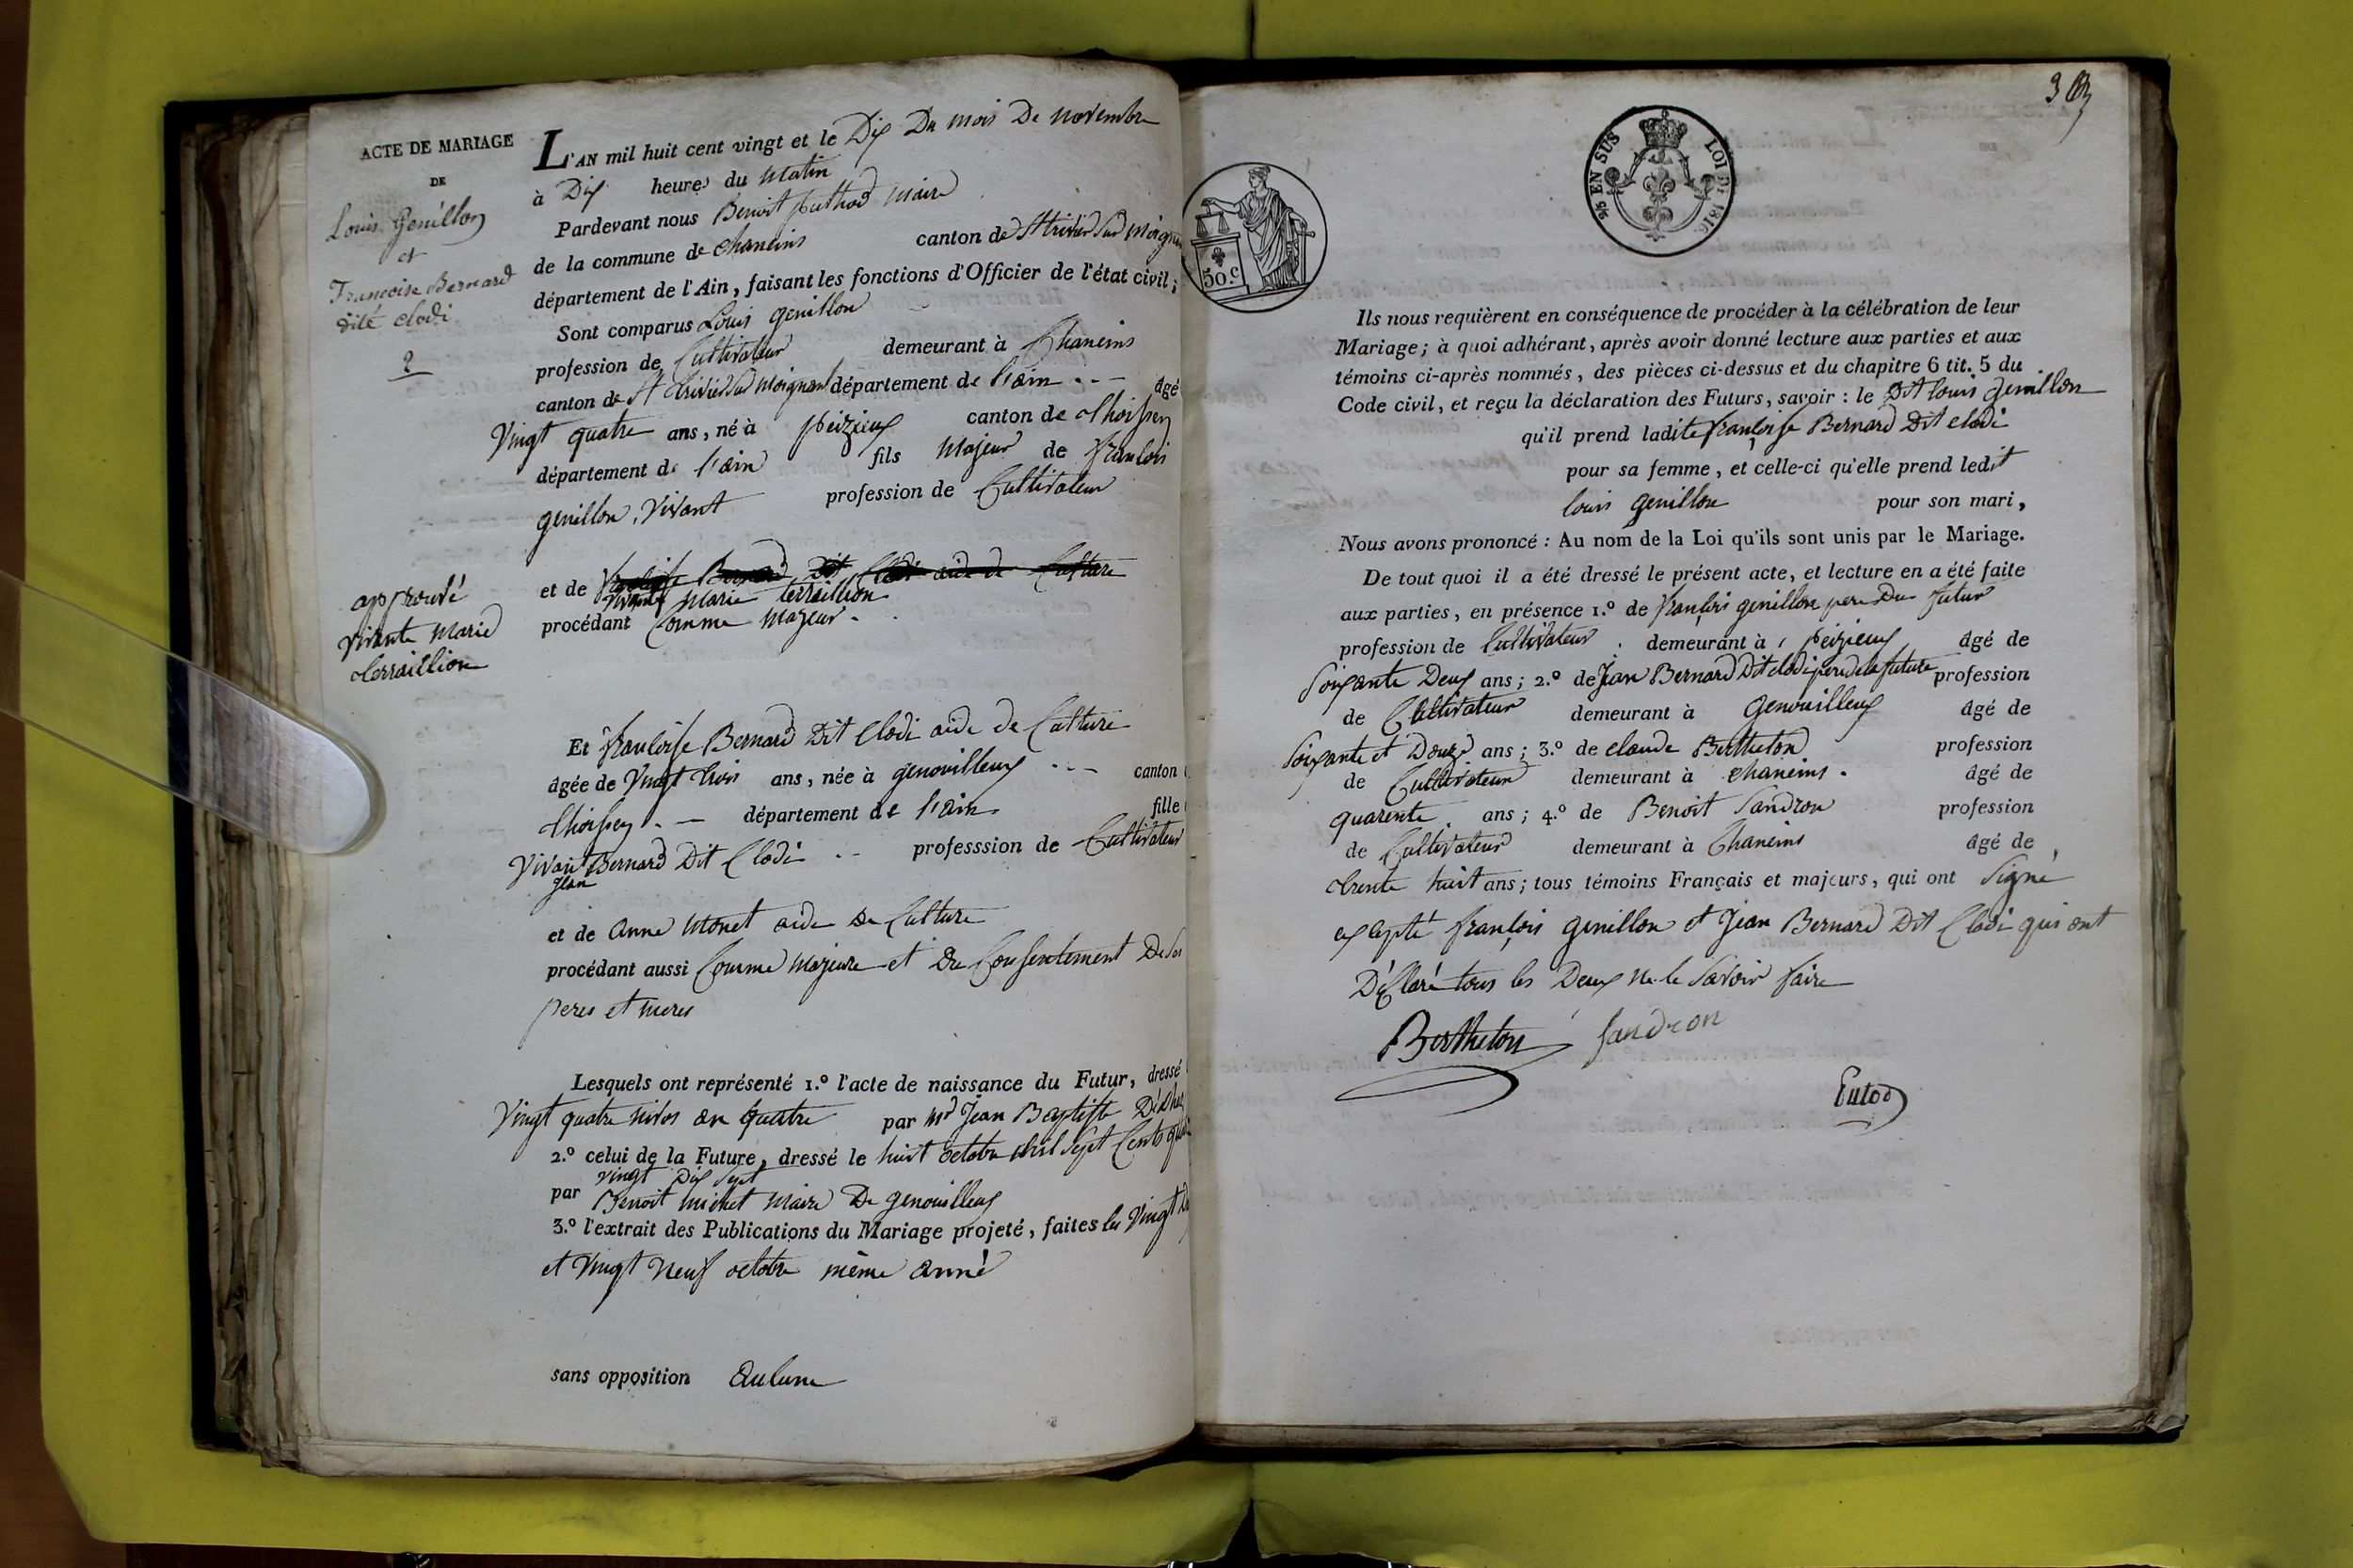 ACTE DE MARIAGE
DE
Louis Genillon
et
Françoise Bernard
dite clodi
2
approuvé
vivante marie
terraillion
L'AN mil huit cent vingt et le Dix Du mois De novembre
à Dix heures du matin
Pardevant nous Benoit puthod maire
de la commune de chaneins canton de St trivier sur moignan
département de l'Ain, faisant les fonctions d'Officier de l'état civil;
Sont comparus Louis genillon
profession de Cultivateur demeurant à Chaneins
canton de St trivier sur moignand département de l'ain . . — âgé
Vingt quatre ans, né à peizieux canton de thoissey
département de l'ain fils majeur de françois
genillon, vivant profession de Cultivateur
et de françoise Bernard Dit Clodi aide de Culture
vivante marie terraillion
procédant Comme majeur.
Et françoise Bernard Dit Clodi aide de Culture
âgée de Vingt trois ans, née à genouilleux . . — canton
thoissey . — département de l'ain fille
Vivant Bernard Dit Clodi . . professsion de Cultivateur
Jean
et de anne monet aide de Culture
procédant aussi Comme majeure et Du Consentement De ses
peres et meres
Lesquels ont représenté 1.º l'acte de naissance du Futur, dressé
Vingt quatre nivos an quatre par mr Jean Baptiste
2.º celui de la Future, dressé le huit octobre mil sept Cents
vingt Dix sept
par Benoit michet maire De genouilleux
3.º l'extrait des Publications du Mariage projeté, faites les Vingt
et Vingt neuf octobre même anné
sans opposition aulune
3
95 EN SUS
LOI DE 1816
50.c
Ils nous requièrent en conséquence de procéder à la célébration de leur
Mariage; à quoi adhérant, après avoir donné lecture aux parties et aux
témoins ci-après nommés, des pièces ci-dessus et du chapitre 6 tit. 5 du
Code civil, et reçu la déclaration des Futurs, savoir : le Dit louis genillon
qu'il prend ladite françoise Bernard Dit clodi
pour sa femme, et celle-ci qu'elle prend ledit
louis genillon pour son mari,
Nous avons prononcé : Au nom de la Loi qu'ils sont unis par le Mariage.
De tout quoi il a été dressé le présent acte, et lecture en a été faite
aux parties, en présence 1.º de françois genillon pere Du futur
profession de Cultivateur . demeurant à peizieux âgé de
Soixante Deux ans; 2.º de Jean Bernard Dit clodi pere de la future profession
de Cultivateur demeurant à Genouilleux âgé de
Soixante et Douze ans; 3.º de claude Bertheton profession
de Cultivateur demeurant à chaneins . âgé de
quarente . ans; 4.º de Benoit Sandron profession
de Cultivateur demeurant à Chaneins âgé de
trente huit ans; tous témoins Français et majeurs, qui ont Signé
exepté françois genillon et Jean Bernard Dit Clodi qui ont
Déclaré tous les Deux ne le Savoir faire
Bertheton Sandron
Putod